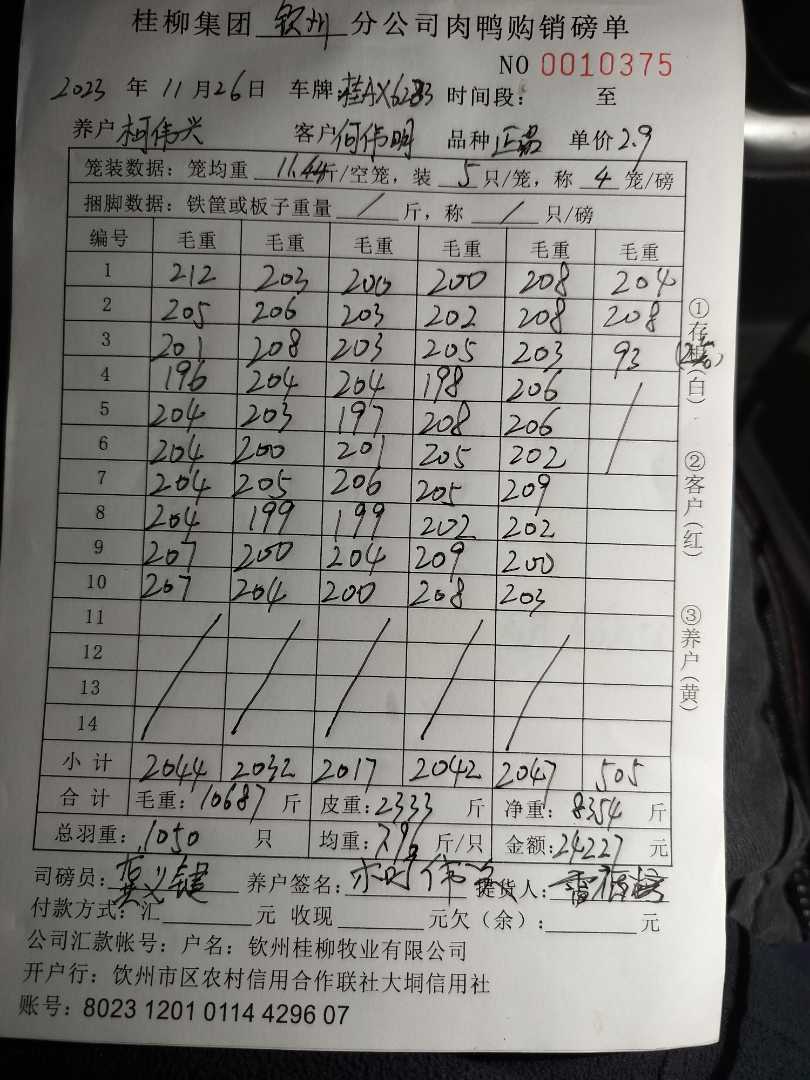 桂柳集团 钦州 分公司肉鸭购销磅单
NO 0010375
2023 年 11 月 26 日 车牌:桂AX6283 时间段: 至
养户 柯伟兴 客户 何伟明 品种 正品 单价 2.9
笼装数据: 笼均重 11.44 斤/空笼, 装 5 只/笼, 称 4 笼/磅
捆脚数据: 铁筐或板子重量 / 斤, 称 / 只/磅
编号 毛重 毛重 毛重 毛重 毛重 毛重
1 212 203 200 200 208 204
2 205 206 203 202 208 208
3 201 208 203 205 203 93
4 196 204 204 198 206 /
5 204 203 197 208 206
6 204 200 201 205 202
7 204 205 206 205 209
8 204 199 199 202 202
9 207 200 204 209 200
10 207 204 200 208 203
11 / / / / /
12
13
14
小计 2044 2032 2017 2042 2047 505
合计 毛重: 10687 斤 皮重: 2333 斤 净重: 8354 斤
总羽重: 1050 只 均重: 7.96 斤/只 金额: 24227 元
司磅员: 养户签名: 提货人:
付款方式: 汇 元 收现 元欠(余): 元
公司汇款帐号: 户名: 钦州桂柳牧业有限公司
开户行: 钦州市区农村信用合作联社大垌信用社
账号: 8023 1201 0114 4296 07
①存根(白)
②客户(红)
③养户(黄)